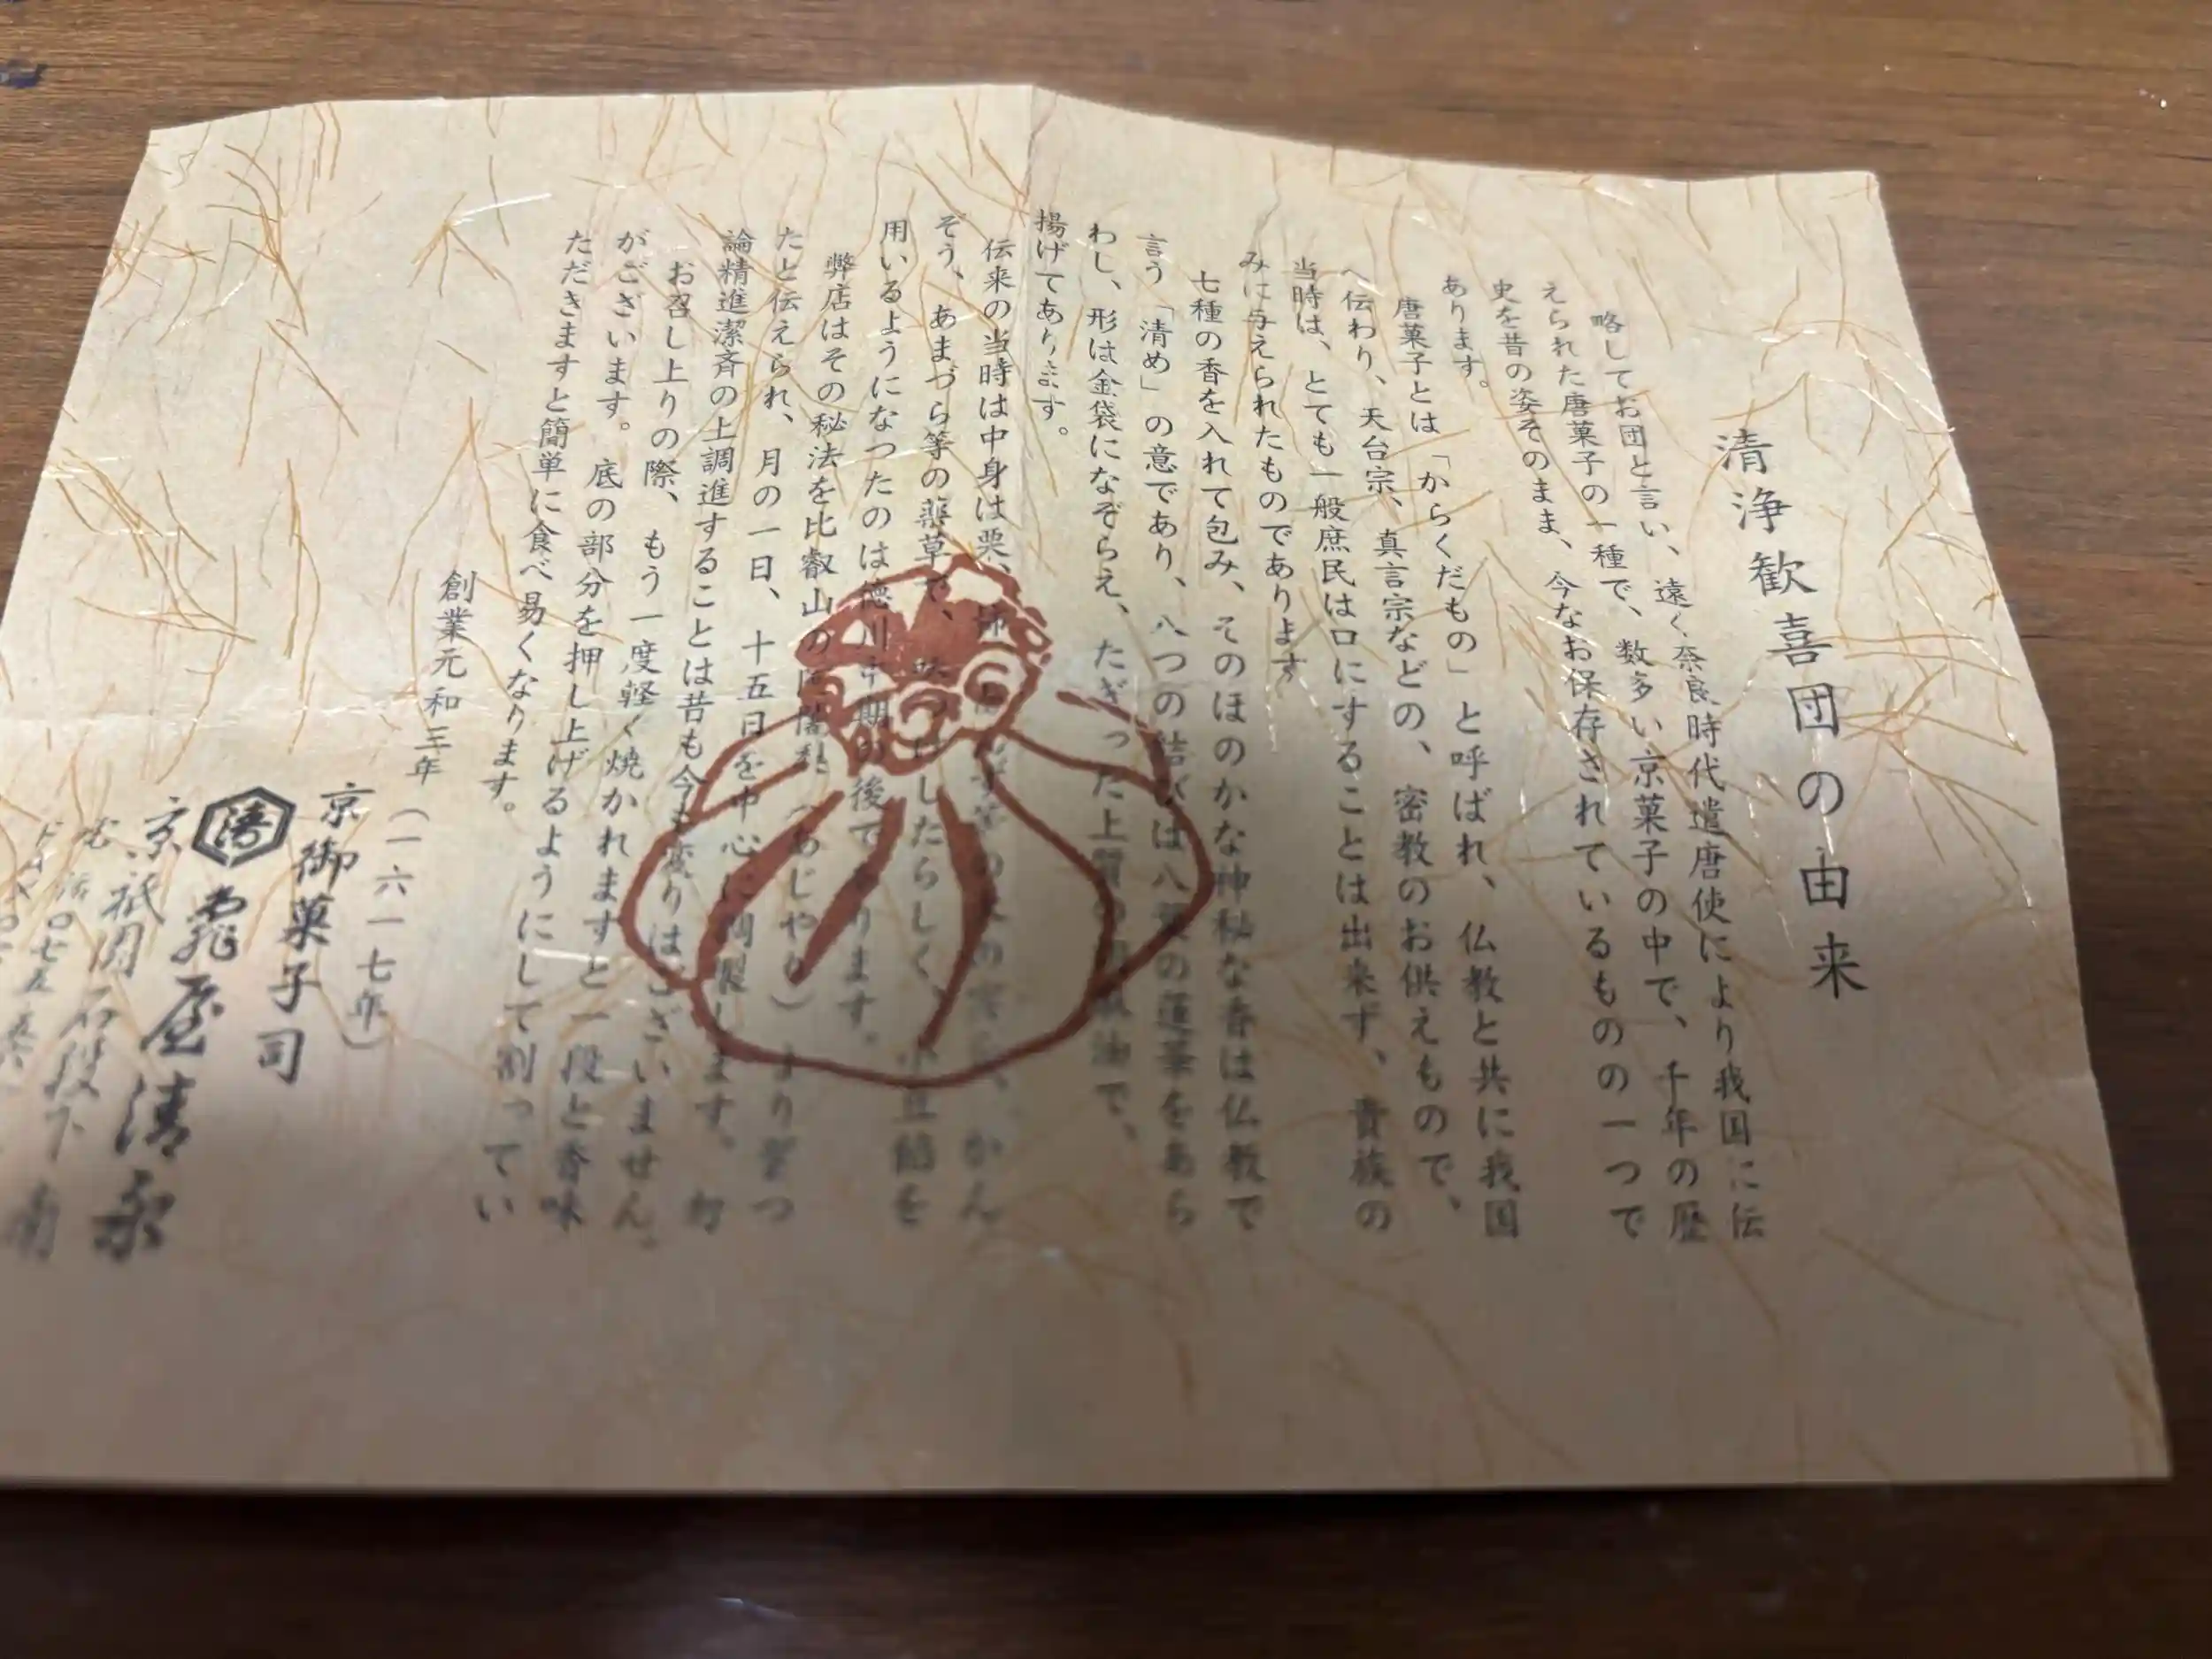 清浄歓喜団の由来
略してお団と言い、遠く奈良時代遣唐使により我国に伝
えられた唐菓子の一種で、数多い京菓子の中で、千年の歴
史を昔の姿そのまま、今なお保存されているものの一つで
あります。
唐菓子とは「からくだもの」と呼ばれ、仏教と共に我国
へ伝わり、天台宗、真言宗などの、密教のお供えもので、
当時は、とても一般庶民は口にすることは出来ず、貴族の
みに与えられたものであります
七種の香を入れて包み、そのほのかな神秘な香は仏教で
言う「清め」の意であり、八つの結びは八葉の蓮華をあら
わし、形は金袋になぞらえ、たぎった上質の
揚げてあります。
伝来の当時は中身は栗、柿、 かん
ぞう、あまづら等の薬草で、味つけしたらしく、小豆餡を
用いるようになつたのは徳川中期の後であります。
弊店はその秘法を比叡山の阿闍梨（あじやり）より習つ
たと伝えられ、月の一日、十五日を中心に調製します。勿
論精進潔斉の上調進することは昔も今も変りはございません。
お召し上りの際、もう一度軽く焼かれますと一段と香味
がございます。底の部分を押し上げるようにして割ってい
ただきますと簡単に食べ易くなります。
創業元和三年（一六一七年）
京御菓子司
清 亀屋清永
京・祇園石段下南